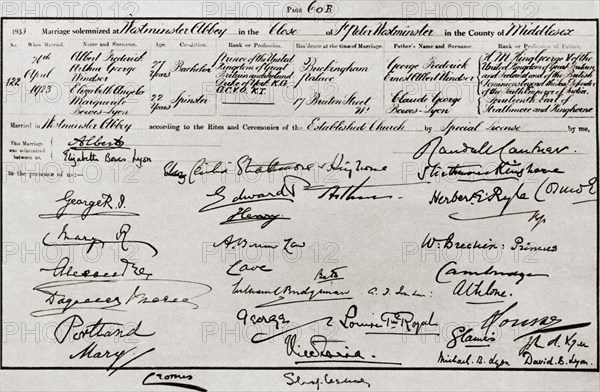 PAGE 60B
1933 Marriage solemnized at Westminster Abbey in the Close of St Peter Westminster in the County of Middlesex
No. When Married. Name and Surname. Age. Condition. Rank or Profession. Residence at the time of Marriage. Father's Name and Surname. Rank or Profession of Father.
122
April
1923
Albert Frederick
Arthur George
Windsor
Elizabeth Angela
Marguerite
Bowes-Lyon
27
Years
22
Years
Bachelor
Spinster
Prince of the United
Kingdom of Great
Britain and Ireland
Duke of York K.G.
Buckingham
Palace
17 Bruton Street
W.
George Frederick
Ernest Albert Windsor
Claude George
Bowes-Lyon
H. M. King George V of the
United Kingdom of Great Britain
and Ireland and of the British
Dominions beyond the Seas Defender
of the Faith Emperor of India.
Fourteenth Earl of
Strathmore and Kinghorne
Married in Westminster Abbey according to the Rites and Ceremonies of the Established Church by Special License by me,
This Marriage
was solemnized
between us,
Albert
Elizabeth Bowes Lyon
in the presence of us:—
Randall Cantuar:
Cecilia Strathmore & Kinghorne
Strathmore & Kinghorne
George R.I.
Edward P
Arthur
Herbert E. Ryle
Mary R
Henry
W. Brechin: Primus
Alexandra
Cave
Cambridge
William C. Bridgeman
Athlone.
Portland
George
Louise
Glamis
Mary
Victoria.
Michael B. Lyon
David B. Lyon.
Cromer